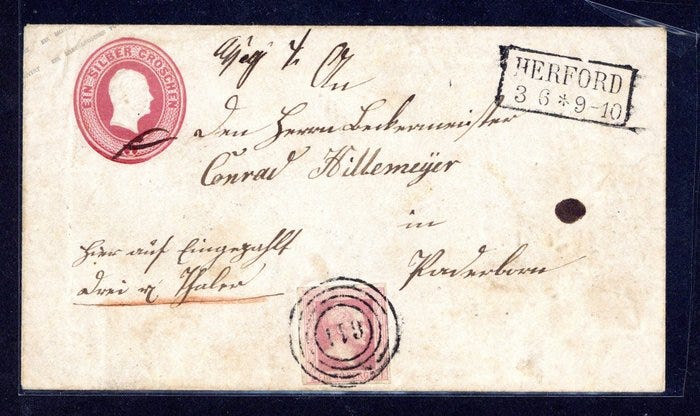 EIN SILBER GROSCHEN
HERFORD
3 6 * 9-10
An
den Herrn Beckermeister
Conrad Hillemeyer
in
Paderborn
hier auf Eingezahlt
drei r Thaler
611